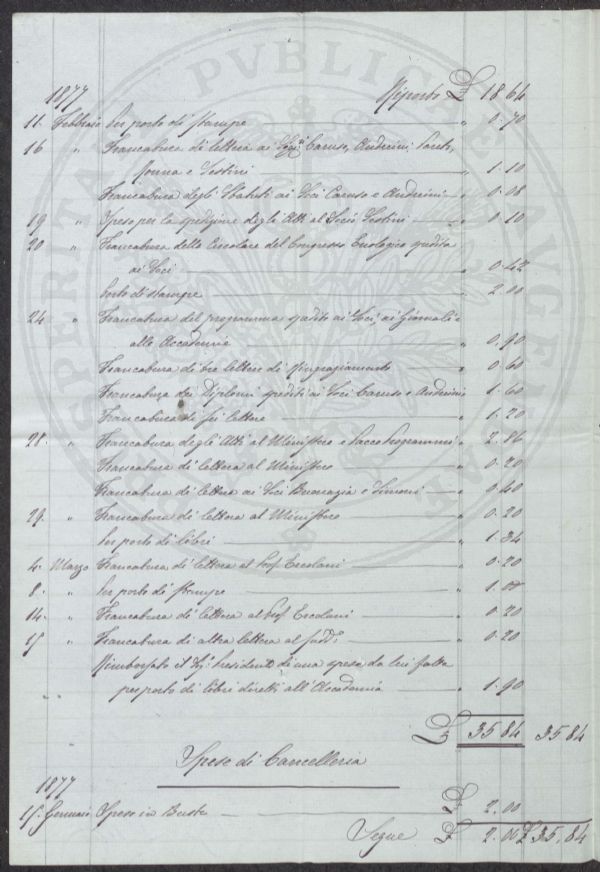 1877 Riporto £ 18.64
11. Febbraio Per porto di stampe " 0.70
16 " Francatura di lettera ai Sigri Caruso, Andreini, Santi,
e Sestini " 1.10
Francatura degli Statuti ai Soci Caruso e Andreini " 0.08
19 " Spese per la spedizione degli Atti al Socio Sestini " 0.10
20 " Francatura della Circolare del Congresso Enologico spedita
ai Soci " 0.42
Porto di stampe " 2.00
24 " Francatura del programma spedito ai Soci, ai Giornali e
alle Accademie " 0.90
Francatura di tre lettere di Ringraziamento " 0.60
Francatura dei Diplomi spediti ai Soci Caruso e Andreini " 1.60
Francatura di sei lettere " 1.20
28. " Francatura degli Atti al Ministero e Programmi " 2.86
Francatura di lettera al Ministero " 0.20
Francatura di lettera ai Soci e Simoni " 0.40
29. " Francatura di lettera al Ministero " 0.20
Per porto di libri " 1.34
4. Marzo Francatura di lettera al Prof Ercolani " 0.20
8. " Per porto di stampe " 1.00
14. " Francatura di lettera al Prof Ercolani " 0.20
15 " Francatura di altra lettera al sudd. " 0.20
Rimborsato al Sig. Presidente di una spesa da lui fatta
per porto di libri diretti all'Accademia " 1.90
£ 35.84 35.84
Spese di Cancelleria
1877
15. Gennaio Spese in Buste £ 2.00
Segue £ 2.00 £ 35.84